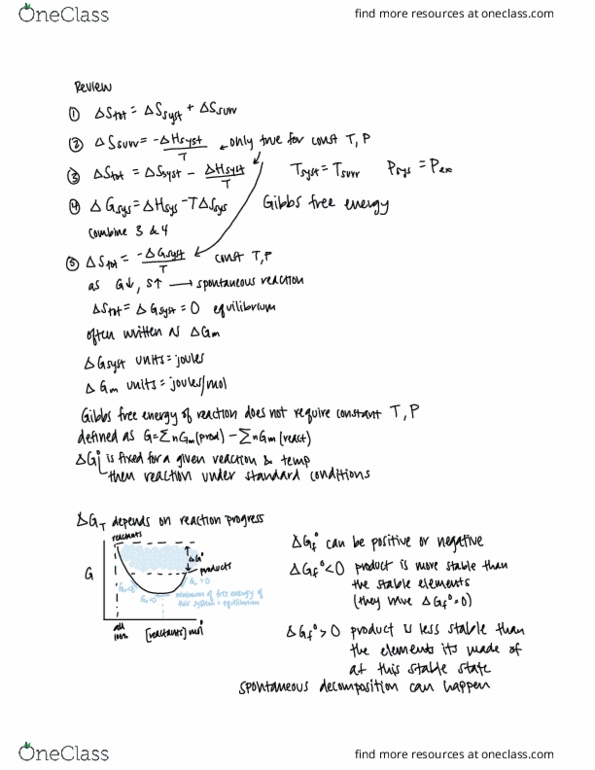 OneClass
find more resources at oneclass.com
Review
① ΔStot = ΔSsyst + ΔSsurr
② ΔSsurr = -ΔHsyst/T ← only true for const T, P
③ ΔStot = ΔSsyst - ΔHsyst/T Tsyst = Tsurr Psys = Pex
④ ΔGsys = ΔHsys - TΔSsys Gibbs free energy
combine 3 & 4
⑤ ΔStot = -ΔGsyst/T const T, P
as G↓, S↑ → spontaneous reaction
ΔStot = ΔGsyst = 0 equilibrium
often written as ΔGm
ΔGsyst units = joules
ΔGm units = joules/mol
Gibbs free energy of reaction does not require constant T, P
defined as G = ΣnGm (prod) - ΣnGm (react)
ΔG° is fixed for a given reaction & temp
then reaction under standard conditions
ΔGT depends on reaction progress
reactants
ΔG°
products
G
minimum of free energy of
this system = equilibrium
all
[reactants]
ΔGf° can be positive or negative
ΔGf° < 0 product is more stable than
the stable elements
(they have ΔGf° = 0)
ΔGf° > 0 product is less stable than
the elements its made of
at this stable state
spontaneous decomposition can happen
OneClass
find more resources at oneclass.com